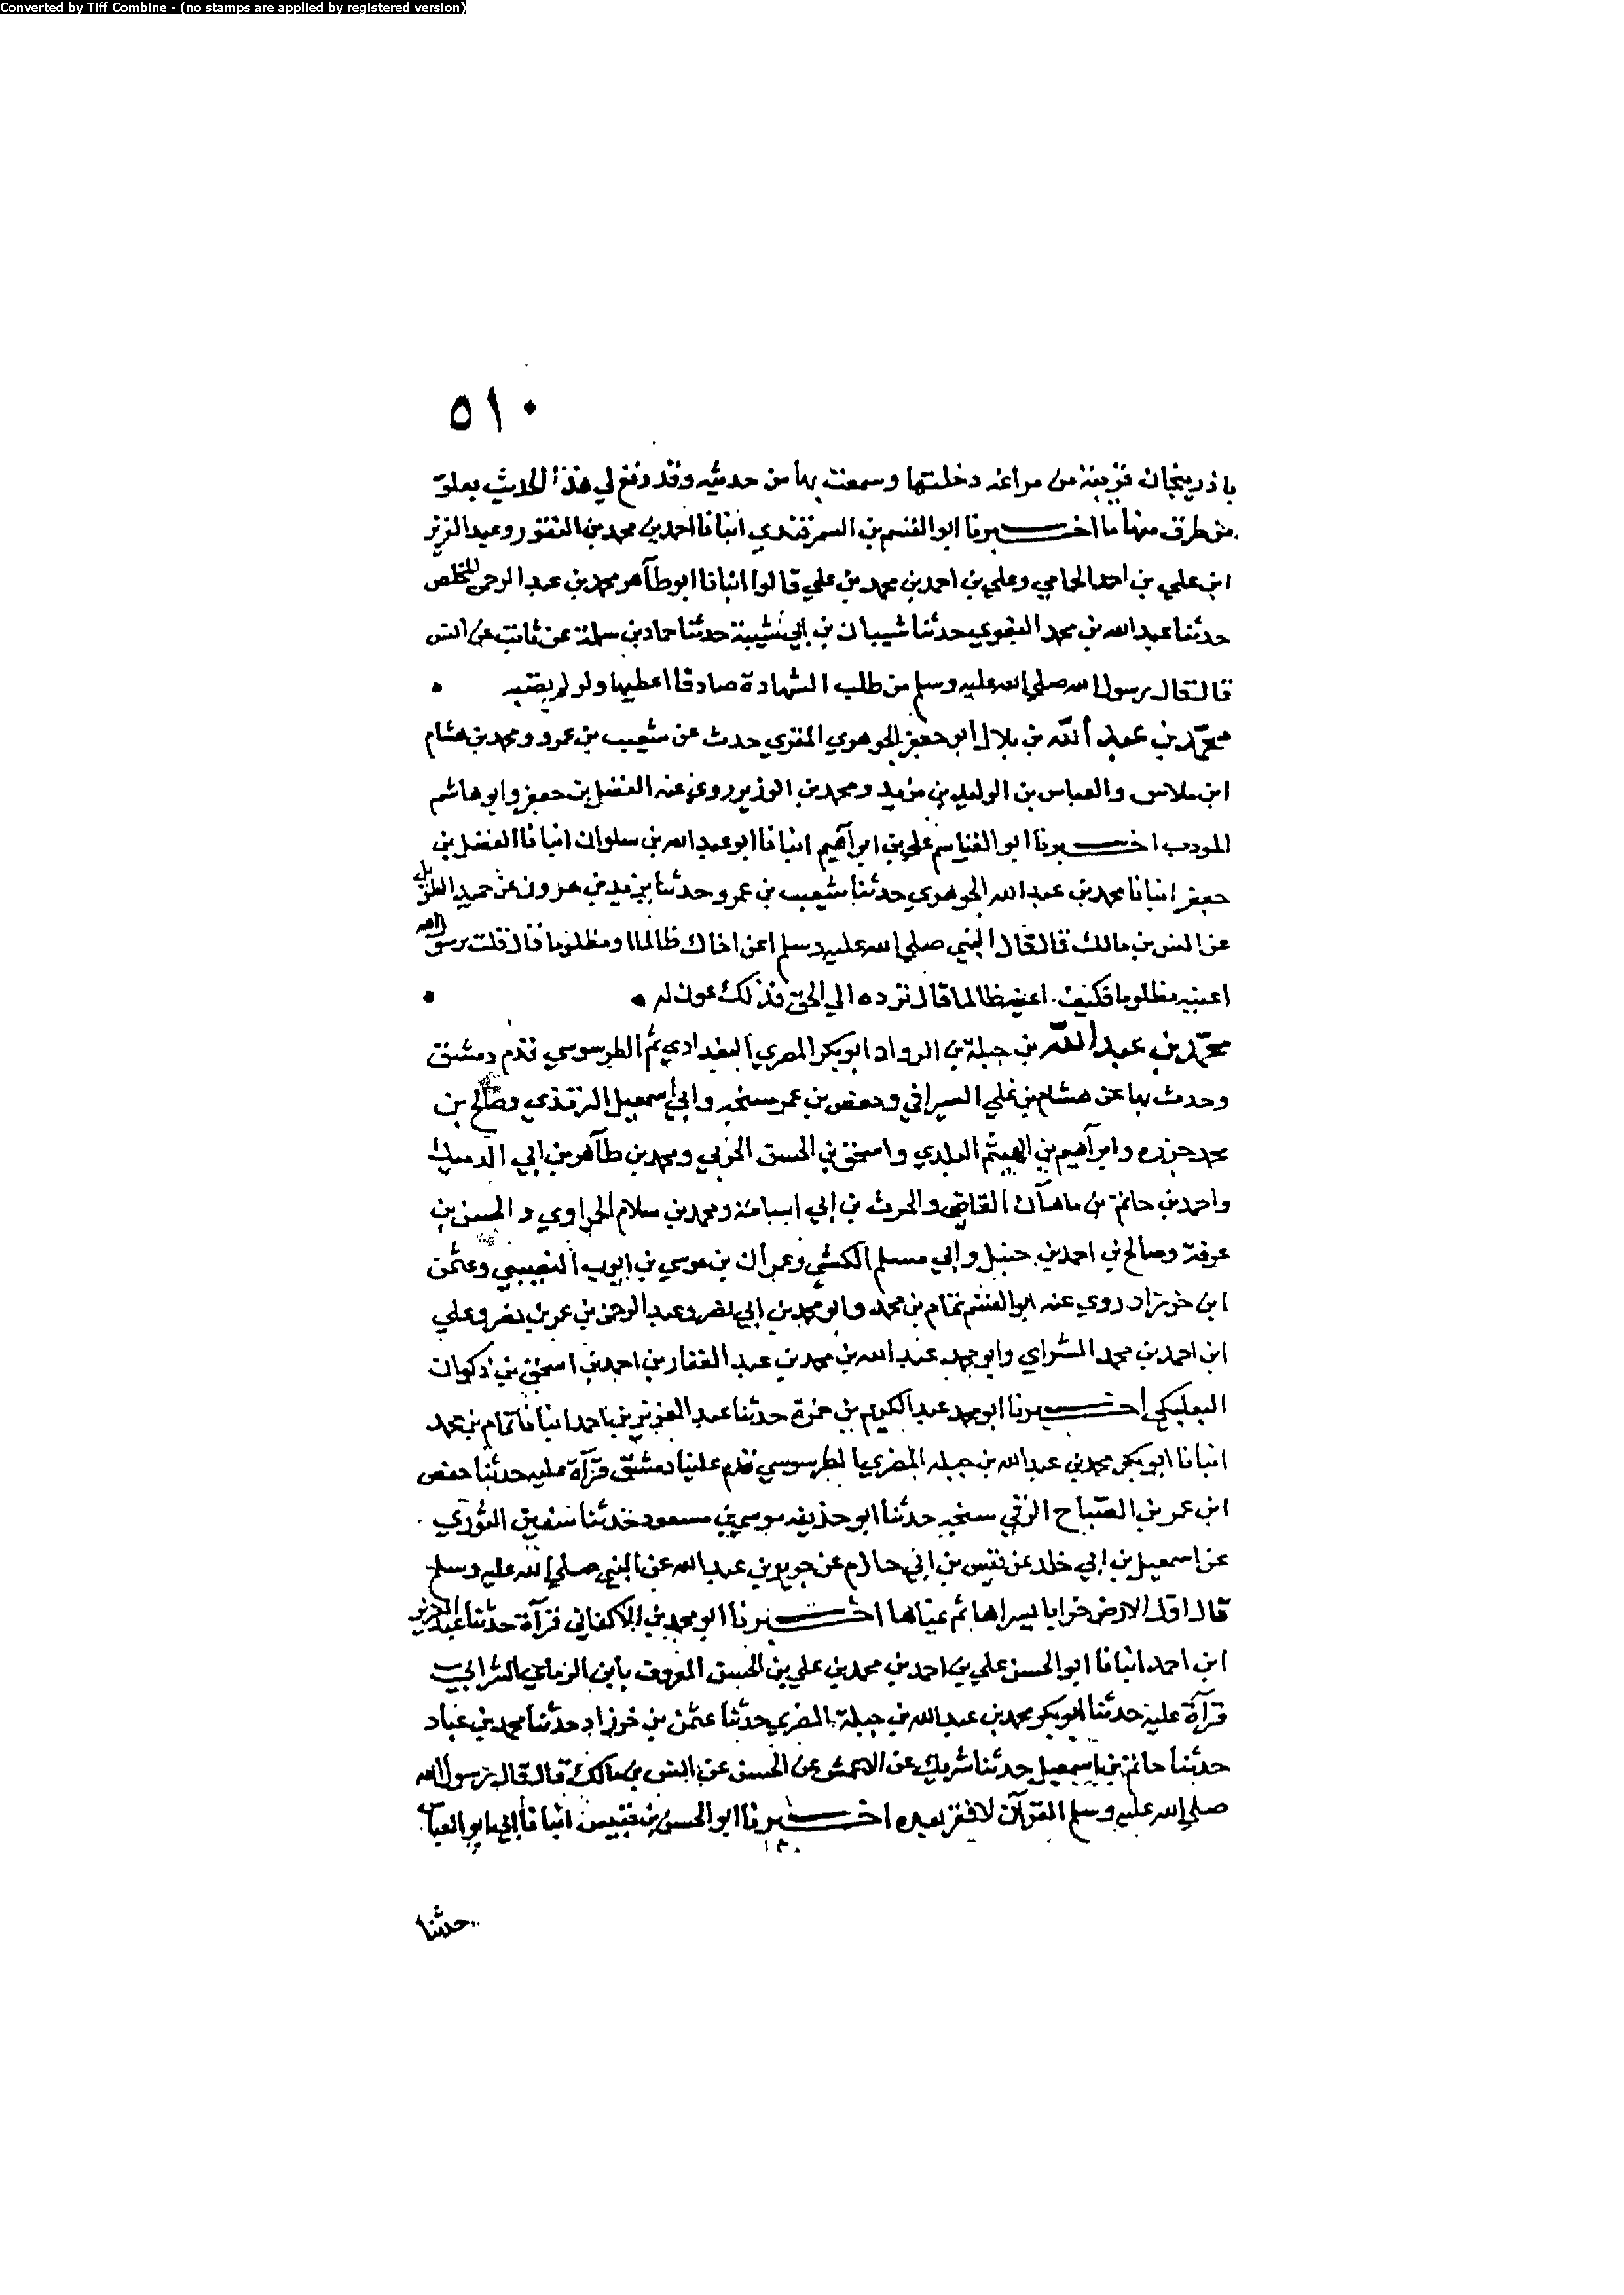 Converted by Tiff Combine - (no stamps are applied by registered version)
٥١٠
باذربيجان قريبة من مراغه دخلتها وسمعت بها من حديثه وقد وقع لي هذا الحديث بعلو
من طرق منها ما اخبرنا ابو القسم بن السمرقندي انبانا احمد بن محمد بن النقور وعبد العزيز
ابن علي بن احمد الحامي وعلي بن احمد بن محمد بن علي قالوا انبانا ابو طاهر محمد بن عبد الرحمن المخلص
حدثنا عبد الله بن محمد البغوي حدثنا شيبان بن ابي شيبة حدثنا حماد بن سلمة عن ثابت عن انس
قال قال رسول الله صلي الله عليه وسلم من طلب الشهادة صادقا اعطيها ولو لم تصبه
محمد بن عبد الله بن بلال ابو جعفر الجوهري المقري حدث عن شعيب بن عمرو ومحمد بن هشام
ابن ملاس والعباس بن الوليد بن مزيد ومحمد بن الوزير روي عنه الفضل بن جعفر وابو هاشم
المودب اخبرنا ابو القاسم علي بن ابراهيم انبانا ابو عبد الله بن سلوان انبانا الفضل بن
جعفر انبانا محمد بن عبد الله الجوهري حدثنا شعيب بن عمرو حدثنا يزيد بن هرون عن حميد الطويل
عن انس بن مالك قال قال النبي صلي الله عليه وسلم اعن اخاك ظالما او مظلوما قال قلت يرسول الله
اعينه مظلوما فكيف اعينه ظالما قال ترده الي الحق فذلك عون له
محمد بن عبد الله بن جبلة بن الرواد ابو بكر المصري البغدادي ثم الطرسوسي قدم دمشق
وحدث بها عن هشام بن علي السيرافي وحفص بن عمر سنجه وابي اسمعيل الترمذي وصالح بن
محمد جزره وابراهيم بن الهيثم البلدي واسحق بن الحسن الحربي ومحمد بن طاهر بن ابي الدميك
واحمد بن حاتم بن ماهان القاضي والحرث بن ابي اسامة ومحمد بن سلام الحراوي والحسن بن
عرفة وصالح بن احمد بن حنبل وابي مسلم الكشي وعمران بن موسي بن ايوب النصيبي وعثمن
ابن خرزاد روي عنه ابو القسم تمام بن محمد وابو محمد بن ابي نصر وعبد الرحمن بن عمر بن نصر وعلي
ابن احمد بن محمد الشراي وابو محمد عبد الله بن محمد بن عبد الغفار بن احمد بن اسحق بن ذكوان
البعلبكي اخبرنا ابو محمد عبد الكريم بن حمزة حدثنا عبد العزيز بن احمد انبانا تمام بن محمد
انبانا ابو بكر محمد بن عبد الله بن جبله المصري الطرسوسي قدم علينا دمشق قرآة عليه حدثنا حفص
ابن عمر بن الصباح الرقي سنجه حدثنا ابو حذيفه موسي بن مسعود حدثنا سفين الثوري
عن اسمعيل بن ابي خلد عن قيس بن ابي حازم عن جرير بن عبد الله عن النبي صلي الله عليه وسلم
قال اول الارض خرابا يسراها ثم يمناها اخبرنا ابو محمد بن الاكفاني قرآة حدثنا عبد العزيز
ابن احمد انبانا ابو الحسن علي بن احمد بن محمد بن علي بن الحسن المعروف بابن الزماي الشرابي
قرآة عليه حدثنا ابو بكر محمد بن عبد الله بن جبلة المصري حدثنا عثمن بن خرزاد حدثنا محمد بن عباد
حدثنا حاتم بن اسمعيل حدثنا شريك عن الاعمش عن الحسن عن انس بن مالك قال قال رسول الله
صلي الله عليه وسلم القرآن لا فقر بعده اخبرنا ابو الحسن بن قبيس انبانا ابي ابو العباس
حدثنا